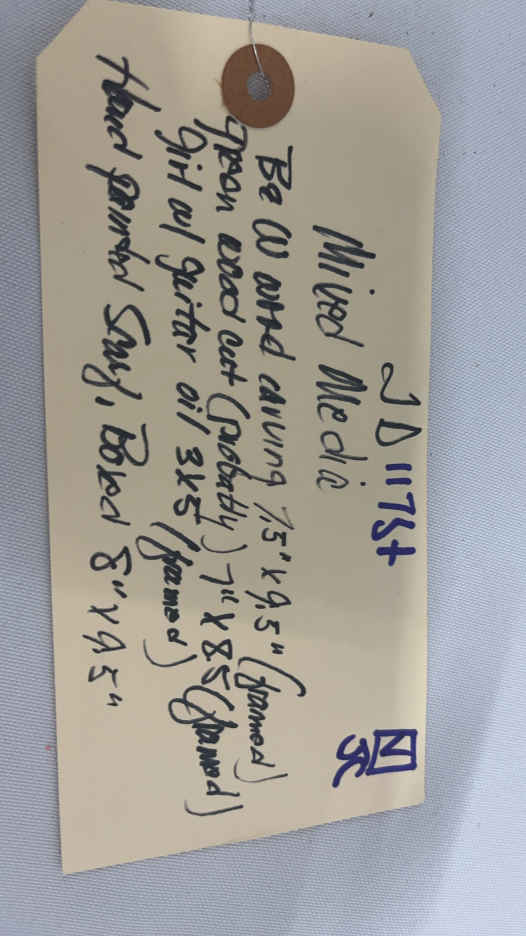 JD 1175t
Mixed Media
B & W wood carving 7.5" x 9.5" (framed)
green wood cut (probably) 7" x 8.5 (framed)
girl w/ guitar oil 3x5 (framed)
Hand painted Boxed 8" x 9.5"
N
JC